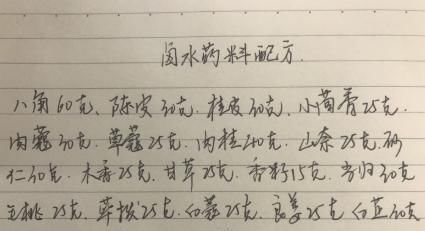 卤水药料配方.
八角60克、陈皮30克、桂皮30克、小茴香25克.
肉蔻30克.草蔻25克.肉桂40克.山奈25克.砂
仁30克.木香25克.甘草25克.香籽15克.当归30克
25克.荜拨25克.白蔻25克.良姜25克 白芷30克